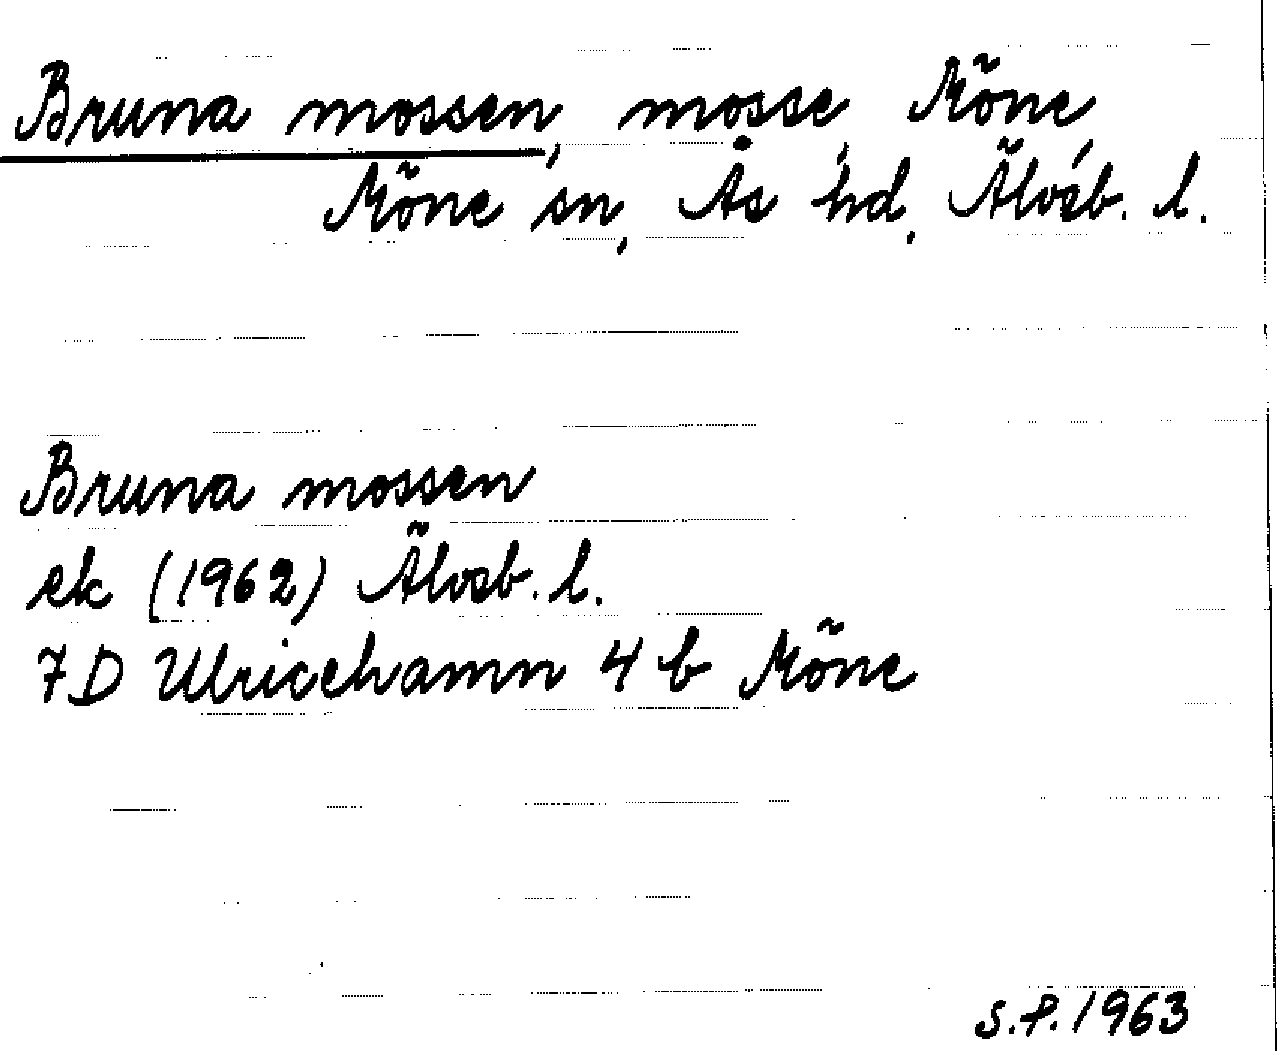 Bruna mossen, mosse, Möne,
Möne sn, Ås hd, Älvsb. l.
Bruna mossen
ek (1962) Älvsb. l.
7D Ulricehamn 4 b Möne
S.P. 1963